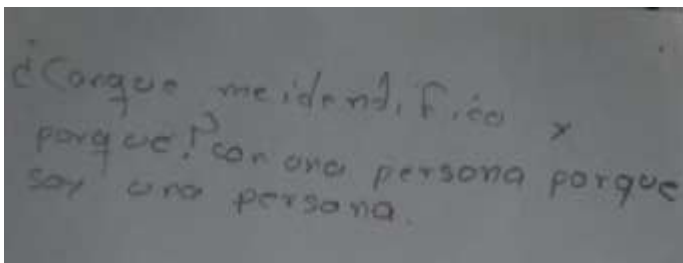 ¿Conque me idendifico y
porque? con una persona porque
soy una persona.